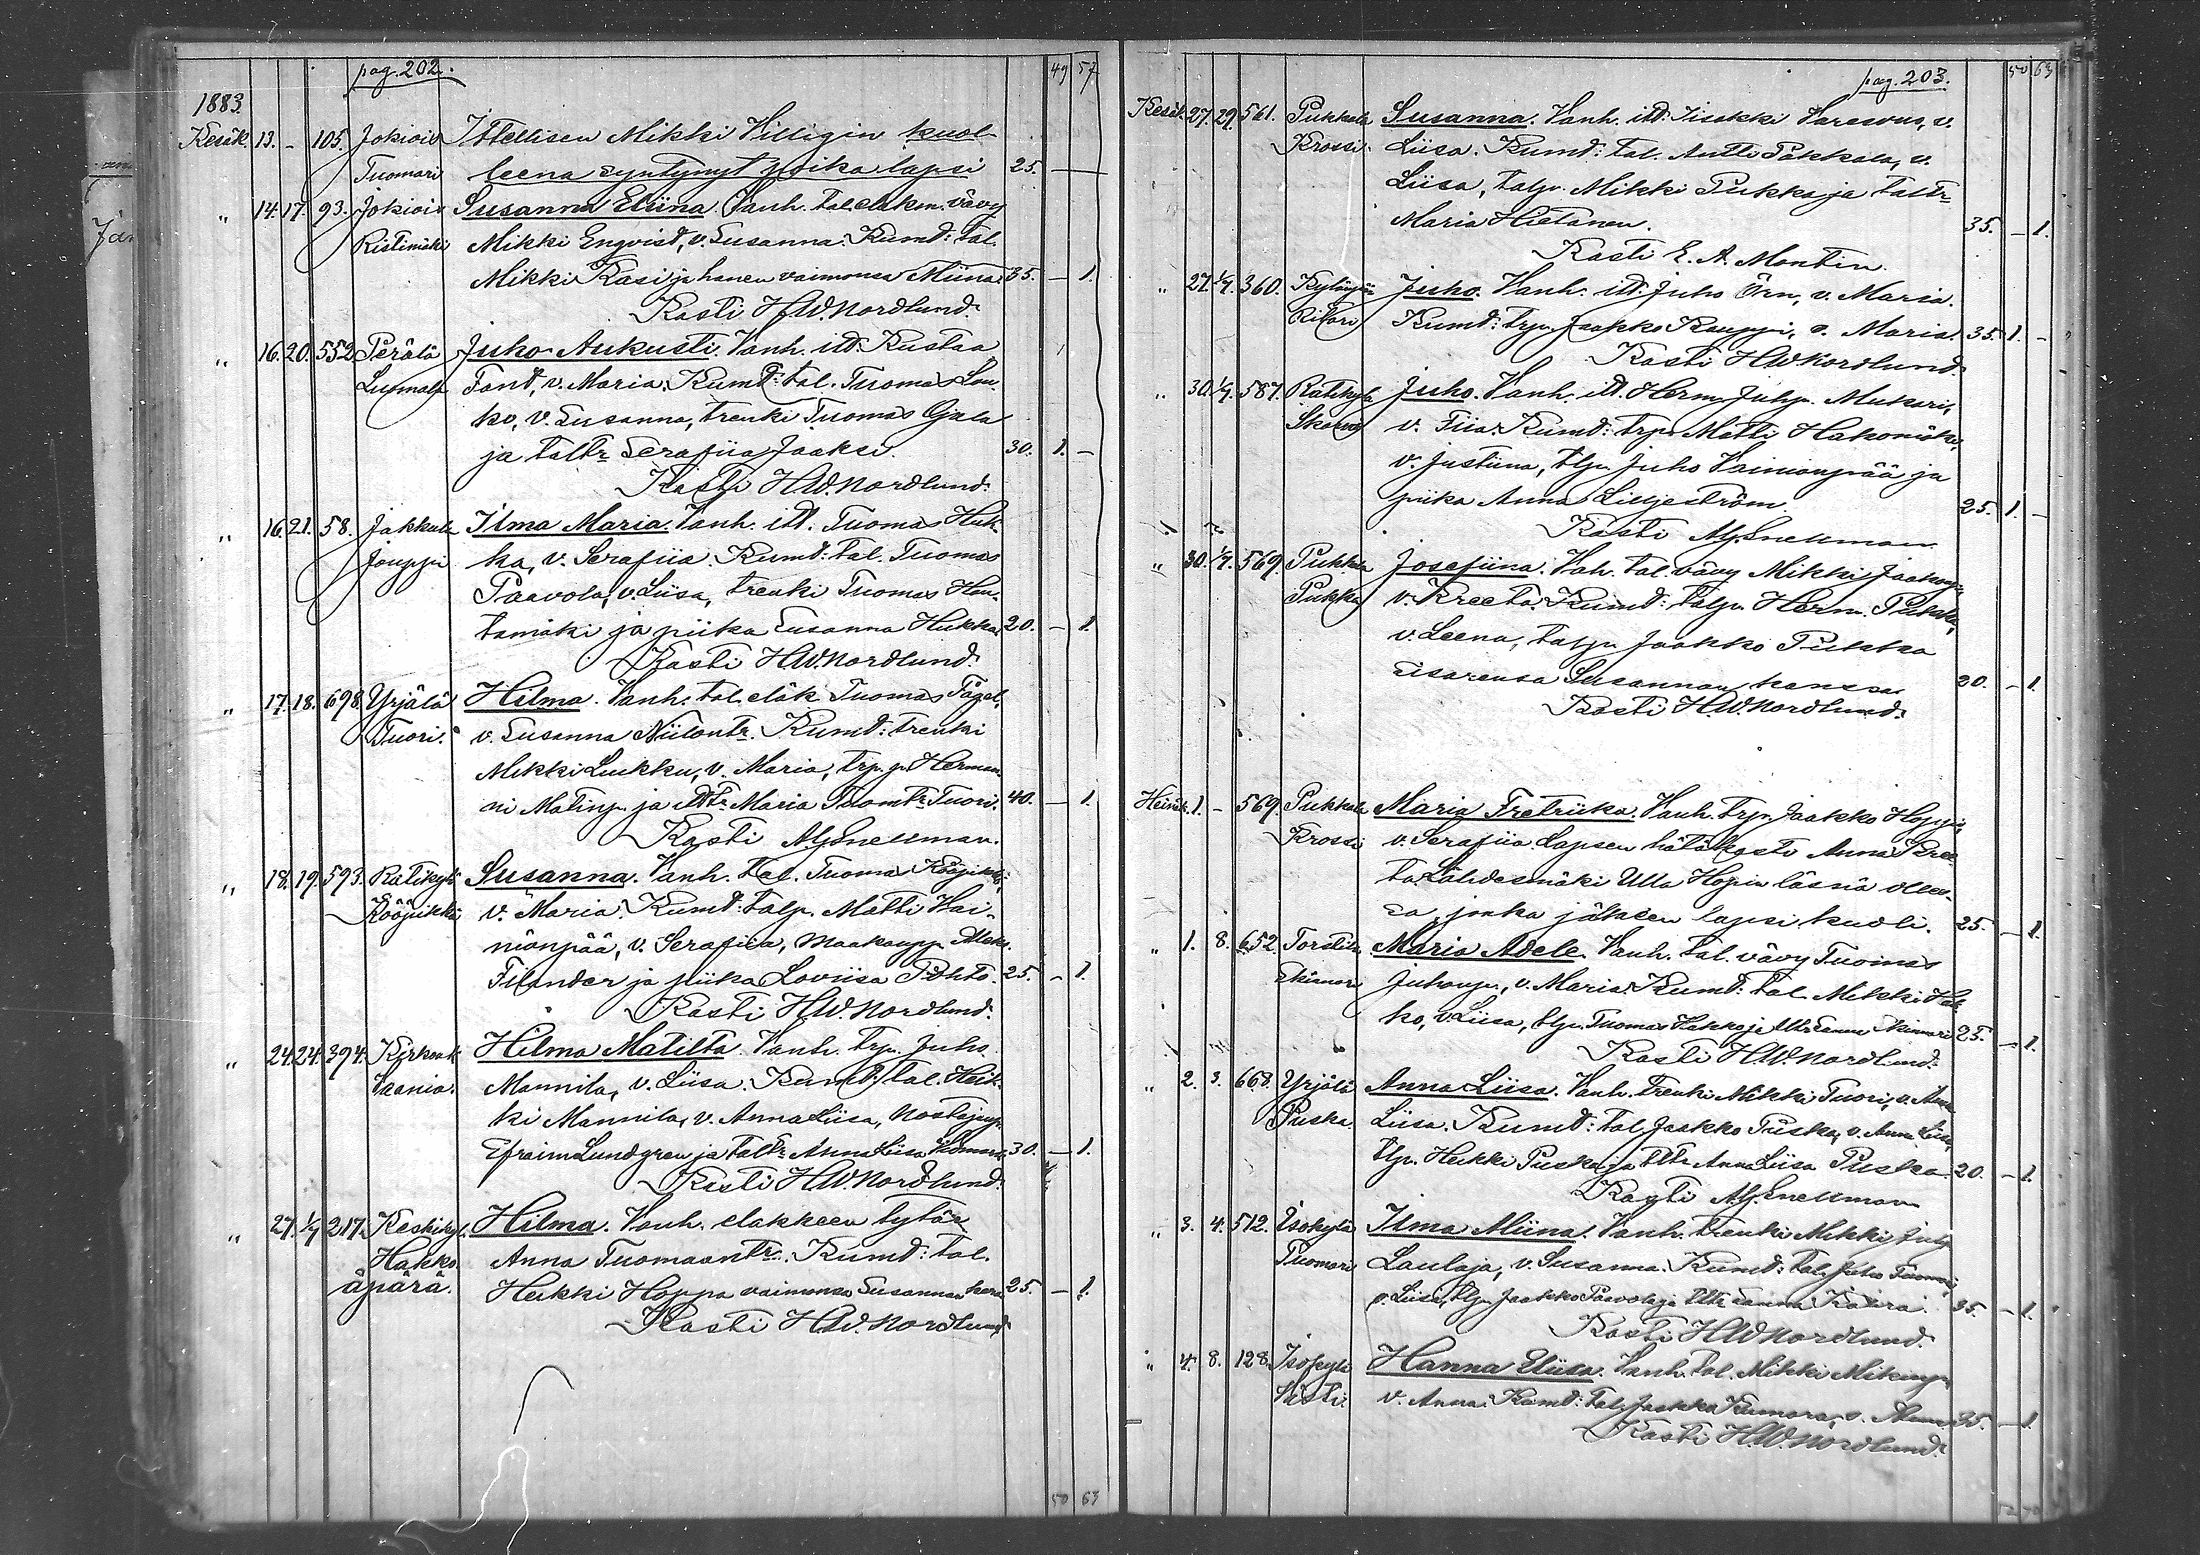 pag. 202.
49 57
1883.
Kesäk. 13. - 105. Jokioiv Ittellisen Mikki Villigin kuol-
Tuomari leena syntynyt poika lapsi 25. —
" 14. 17. 93. Jokioiv Susanna Eliina. Vanh. tal. eläkm. vävy
Ristimäki Mikki Enqvist, v. Susanna. Kumd: tal.
Mikki Kasi ja hänen vaimonsa Miina. 35. — 1.
Kasti H.W. Nordlund.
" 16. 20. 552 Perälä Juho Aukusti. Vanh. itl. Kustaa
Luomala Fant, v. Maria. Kumd: tal. Tuomas Lou-
ko, v. Susanna, trenki Tuomas Ojala
ja taltr Serafiia Jaaksi. 30. 1. —
Kasti H.W. Nordlund.
" 16. 21. 58. Jakkula Ilma Maria. Vanh. itl. Tuomas Huk-
Jouppi ka, v. Serafiia. Kumd: tal. Tuomas
Paavola, v. Liisa, trenki Tuomas Hau-
tamäki ja piika Susanna Hukka 20. — 1.
Kasti H.W. Nordlund.
" 17. 18. 698. Yrjälä Hilma. Vanh. tal. eläk Tuomas
Tuori. v. Susanna Niilontr. Kumd: trenki
Mikki Luukku, v. Maria, trp. p. Herman-
ni Matinp. ja Maria Tuomtr Tuori. 40. — 1.
Kasti Alf. Snellman.
" 18. 19. 593. Ratikylä Susanna. Vanh. tal. Tuomas Rööpikki,
Rööpikki v. Maria. Kumd: talp. Matti Vai-
nionpää, v. Serafiia, maakaupp. Aleks.
Filander ja piika Loviisa Pohto. 25. — 1.
Kasti H.W. Nordlund.
" 24. 24. 394. Kirkonk. Hilma Matilta. Vanh. trp. Juho
Saania. Mannila, v. Liisa. Kumd: tal. Heik-
ki Mannila, v. Anna Liisa,
Efraim Lundgren ja taltr. Anna Liisa 30. — 1.
Kasti H.W. Nordlund.
" 27. 1/7 217. Keskikyl. Hilma. Vanh. eläkkeen tytär
Hakko. Anna Tuomaantr. Kumd: tal.
äpärä. Heikki Hoppa vaimonsa Susannan kans. 25. — 1.
Kasti H.W. Nordlund.
50 63
pag. 203.
50 63
Kesäk. 27. 29. 561. Pukkala Susanna. Vanh. itl. Iisakki Varesvus, v.
Krossi. Liisa. Kumd: tal. Antti Päkkala, v.
Liisa, talp. Mikki Pukka ja taltr
Maria Hietanen. 35. — 1.
Kasti E. A. Montin.
" 27. 1/7. 360. Kylänpää Juho. Vanh. itl. Juho Örn, v. Maria.
Ritari Kumd: trp. Jaakko Kauppi, v. Maria. 35. 1. —
Kasti H.W. Nordlund.
" 30. 1/7. 587. Ratikylä Juho. Vanh. itl. Herm. Juhp. Mukari,
v. Fiia. Kumd: trp. Matti Hakomäki,
v. Justiina, tlp. Juho Vainionpää ja
piika Anna Liljeström. 25. 1. —
Kasti Alf. Snellman.
" 30. 1/7. 569. Pukkala Josefiina. Vah. tal. vävy Mikki Jaakonp.
Pukka v. Kreeta. Kumd: talp. Herm. Pukka,
v. Leena, talp. Jaakko Pukka
sisarensa Susannan kanssa 20. — 1.
Kasti H.W. Nordlund.
Heinäk. 1. — 569. Pukkala Maria Fretriika. Vanh. trp. Jaakko Hoppi,
Krossi v. Serafiia. Lapsen hätäkasti Anna Kree-
ta Lähdesmäki Ulla Hopin läsnä olles-
sa, jonka jälkeen lapsi kuoli. 25. — 1.
" 1. 8. 652. Torstila Maria Adele. Vanh. tal. vävy Tuomas
Juhonp., v. Maria. Kumd: tal. Mikki Hak-
ko, v. Liisa, tlp. Tuomas Hakko ja 25. — 1.
Kasti H.W. Nordlund.
" 2. 3. 668. Yrjälä Anna Liisa. Vanh. trenki Mikki Tuori, v. Anna
Puska. Liisa. Kumd: tal. Jaakko Puska, v. Anna Liisa,
tlp. Heikki Puska ja tltr Anna Liisa Puska. 20. — 1.
Kasti Alf. Snellman
" 3. 4. 512. Isokylä Ilma Miina. Vanh. trenki Mikki Juhp.
Tuomari Laulaja, v. Susanna. Kumd: tal. Juho Tuomari,
v. Liisa, tlp. Jaakko Paavola ja tltr Sanna 35. — 1.
Kasti H.W. Nordlund.
" 4. 8. 128. Isokylä Hanna Eliisa. Vanh. tal. Mikki Mikinp.
v. Anna. Kumd: tal. Jaakko v. Anna 35. — 1.
Kasti H.W. Nordlund.